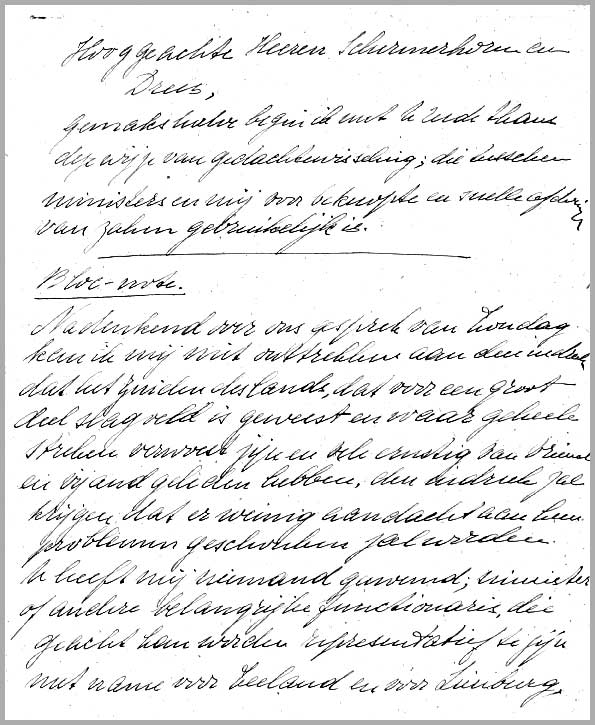 Hooggeachte Heeren Schermerhorn en
Drees,
gemakshalve begin ik met U reeds thans
deze wijze van gedachtenwisseling, die tusschen
ministers en mij voor beknopte en snelle afdoening
van zaken gebruikelijk is.
Bloc-note.
Nadenkend over ons gesprek van Zondag
kan ik mij niet onttrekken aan den indruk
dat het zuiden des lands, dat voor een groot
deel slagveld is geweest en waar geheele
streken verwoest zijn en vele ernstig van vriend
en vijand geleden hebben, den indruk zal
krijgen dat er weinig aandacht aan hun
problemen geschonken zal worden.
U heeft mij niemand genoemd; minister
of andere belangrijke functionaris, die
geacht kan worden representatief te zijn
met name voor Zeeland en voor Limburg.